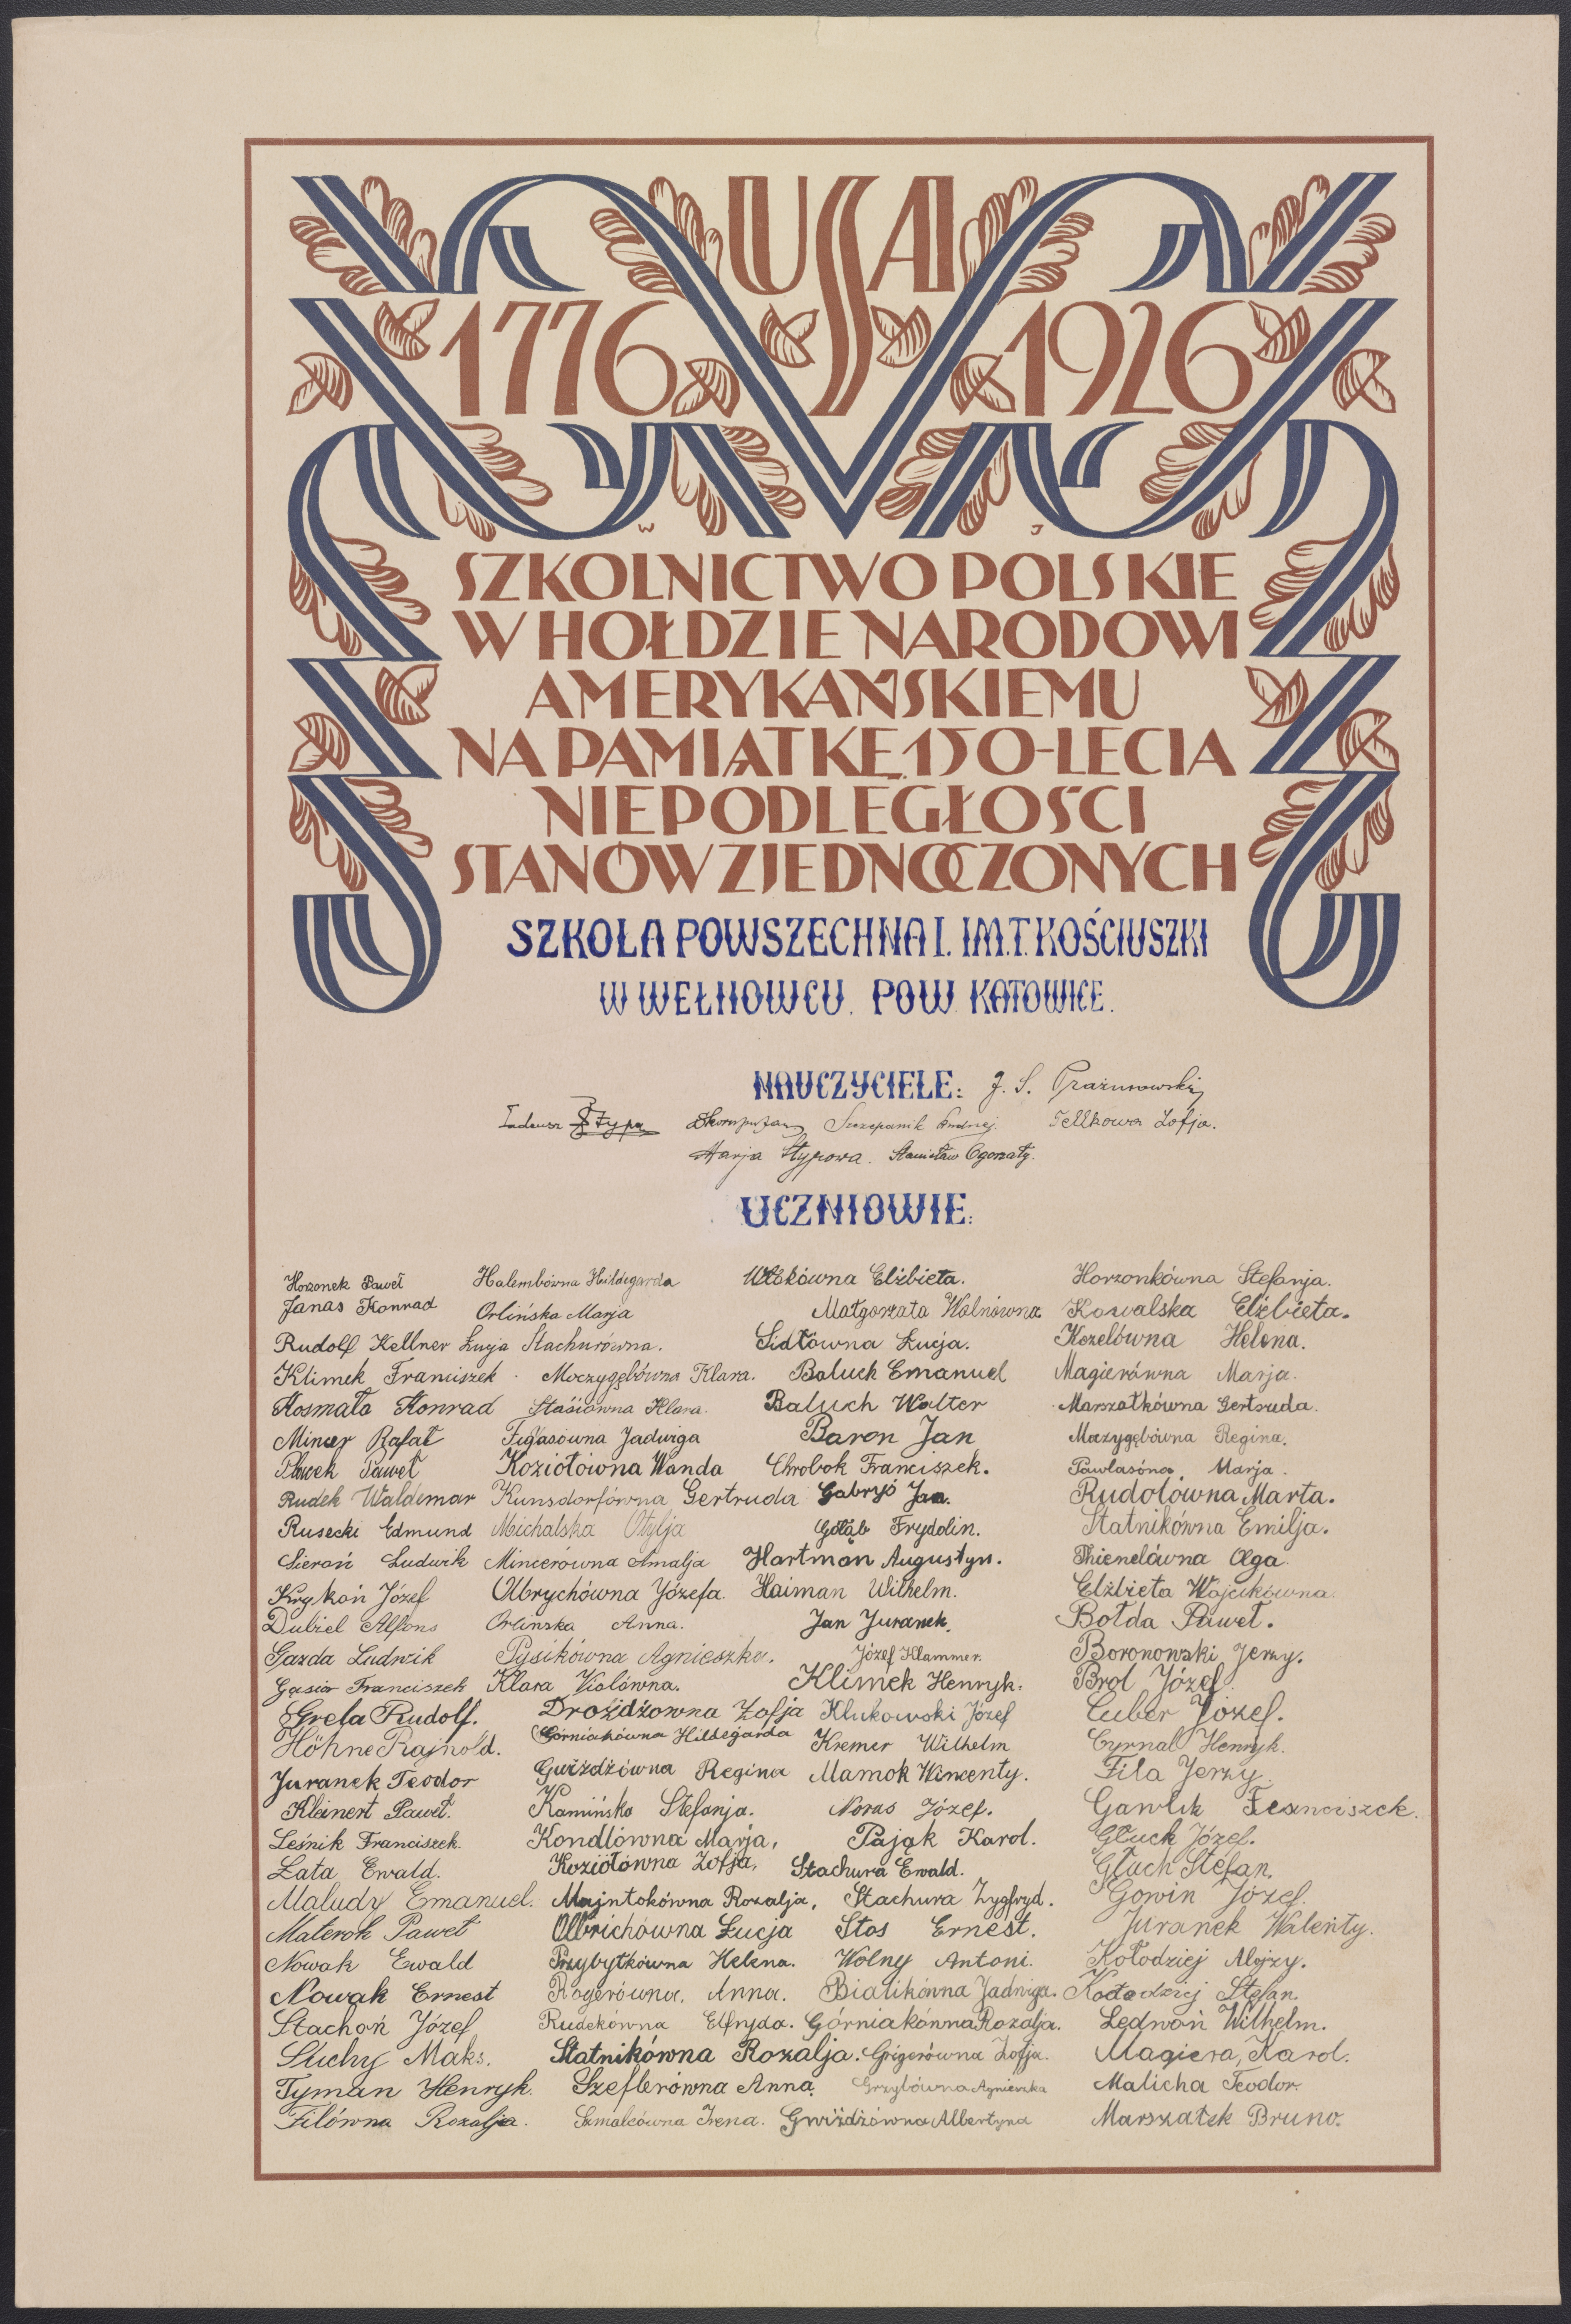 USA
1776 1926
W J
SZKOLNICTWO POLSKIE
W HOŁDZIE NARODOWI
AMERYKAŃSKIEMU
NA PAMIĄTKĘ 150-LECIA
NIEPODLEGŁOŚCI
STANÓW ZJEDNOCZONYCH
SZKOŁA POWSZECHNA I. IM. T. KOŚCIUSZKI
W WEŁNOWCU. POW. KATOWICE.
NAUCZYCIELE: J. S.
Tadeusz Sztypa Szczepanik Andrzej. Tellkowa Zofja.
Marja Stypowa. Stanisław Ogorzały.
UCZNIOWIE:
Horzonek Paweł Halembówna Hildegarda Elżbieta. Horzonkówna Stefanja.
Janas Konrad Orlińska Marja Małgorzata Wolnówna Kowalska Elżbieta.
Rudolf Kellner Łucja Stachurówna. Sidłówna Łucja. Kozelówna Helena.
Klimek Franciszek Moczygębówna Klara. Baluch Emanuel Magierówna Marja.
Kosmała Konrad Stasiówna Klara. Baluch Walter Marszałkówna Gertruda.
Mincer Rafał Figasówna Jadwiga Baron Jan Moczygębówna Regina.
Pławek Paweł Koziołówna Wanda Chrobok Franciszek. Pawlasówna Marja.
Rudek Waldemar Kunsdorfówna Gertruda Gabryś Jan. Rudolówna Marta.
Rusecki Edmund Michalska Otylja Gołąb Frydolin. Statnikówna Emilja.
Sieroń Ludwik Mincerówna Amalja Hartman Augustyn. Thienelówna Olga.
Krykoń Józef Olbrychówna Józefa. Haiman Wilhelm. Elżbieta Wójcikówna.
Dubiel Alfons Orlinska Anna. Jan Juranek. Bołda Paweł.
Gazda Ludwik Pysikówna Agnieszka. Józef Klammer. Boronowski Jerzy.
Gąsior Franciszek Klara Violówna. Klimek Henryk. Brol Józef.
Grela Rudolf. Drożdżowna Zofja Klukowski Józef Cuber Józef.
Höhne Rajnold. Górniakówna Hildegarda Kremer Wilhelm Cyrnal Henryk.
Juranek Teodor Gwiżdżówna Regina Mamok Wincenty. Fila Jerzy.
Kleinert Paweł. Kamińska Stefanja. Noras Józef. Gawlik Franciszek.
Leśnik Franciszek. Kondlówna Marja, Pająk Karol. Głuch Józef.
Łata Ewald. Koziołówna Zofja, Stachura Ewald. Głuch Stefan.
Maludy Emanuel. Majntokówna Rozalja, Stachura Zygfryd. Gowin Józef.
Materok Paweł Olbrichówna Łucja Stos Ernest. Juranek Walenty.
Nowak Ewald Przybyłkówna Helena. Wolny Antoni. Kołodziej Alojzy.
Nowak Ernest Rogerówna. Anna. Białikówna Jadwiga. Kołodziej Stefan.
Stachoń Józef Rudekówna Elfryda. Górniakówna Rozalja. Ledwoń Wilhelm.
Suchy Maks. Statnikówna Rozalja. Grigerówna Zofja. Magiera, Karol.
Tyman Henryk. Szeflerówna Anna. Grzybówna Agnieszka Malicha Teodor.
Filówna Rozalja. Szmalcówna Irena. Gwiżdżówna Albertyna Marszałek Bruno.